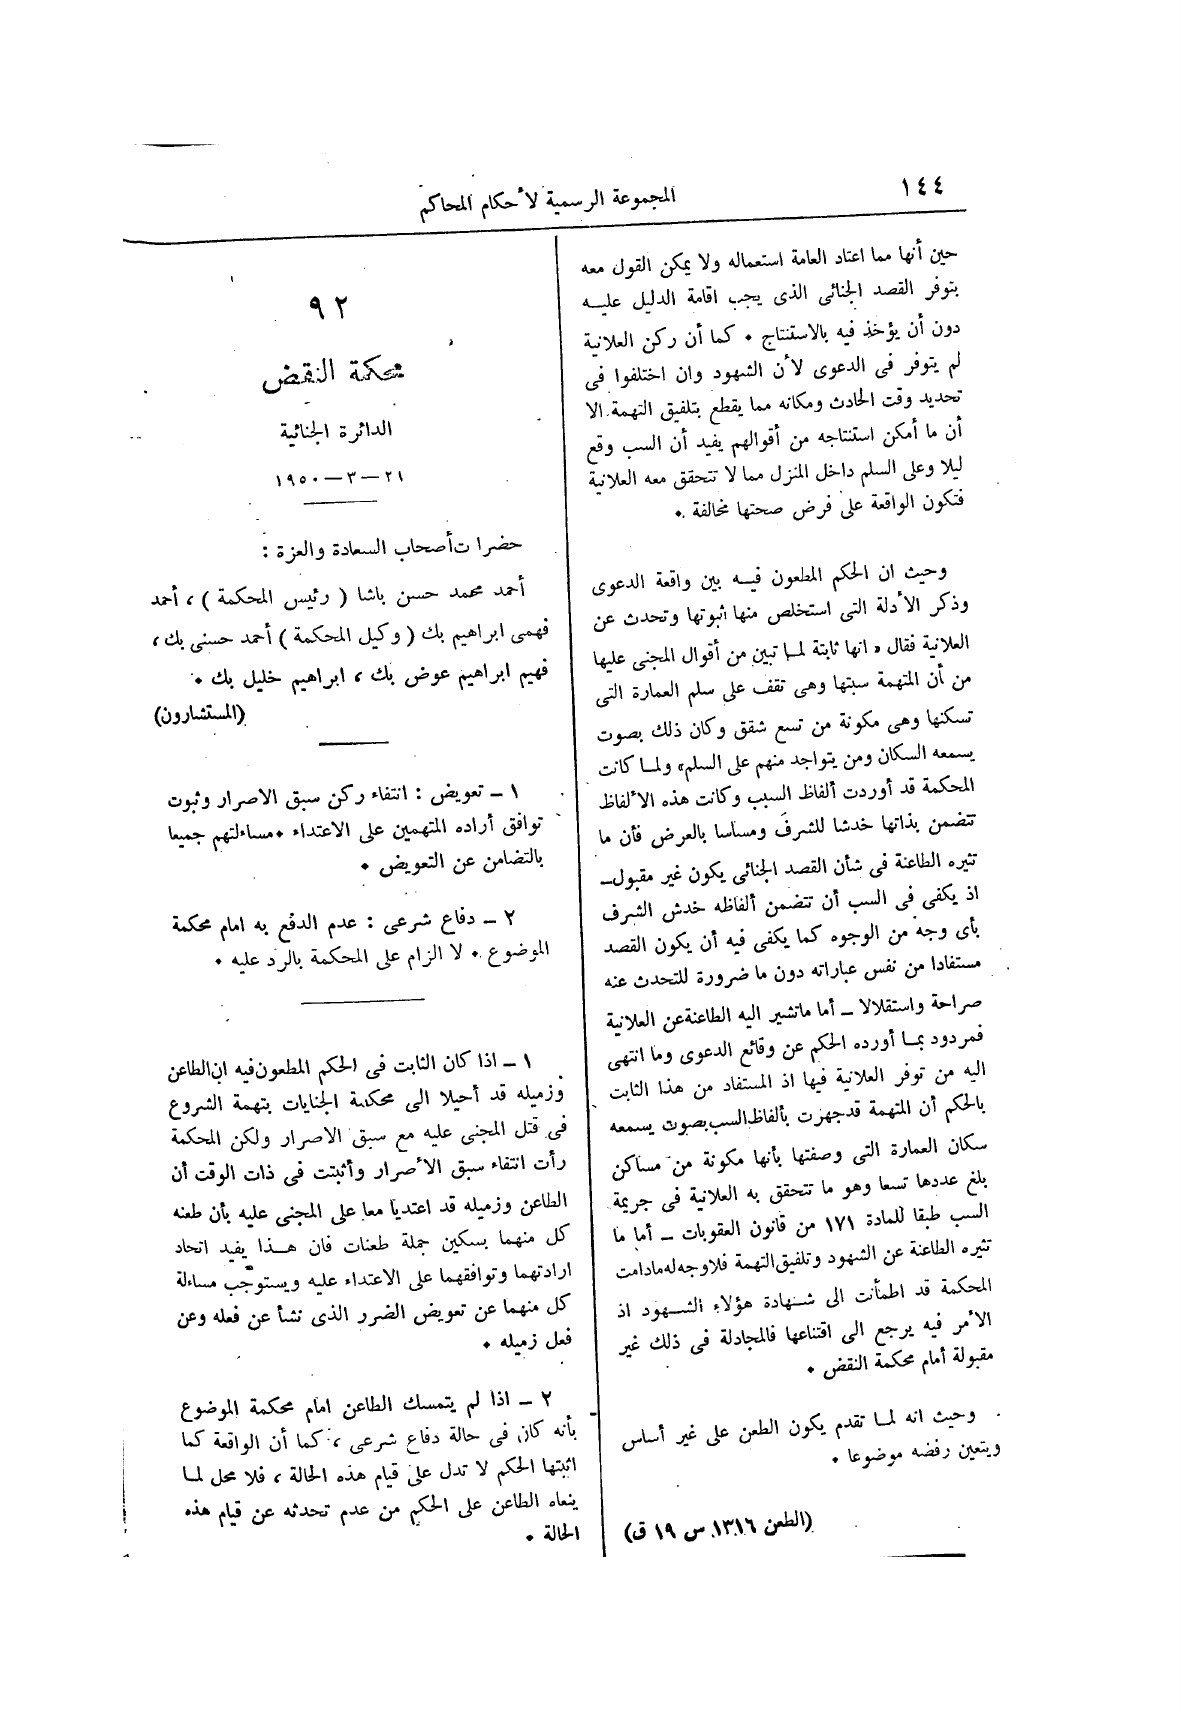 ١٤٤
المجموعة الرسمية لأحكام المحاكم
حين أنها مما اعتاد العامة استعماله ولا يمكن القول معه
بتوفر القصد الجنائى الذى يجب اقامة الدليل عليه
دون أن يؤخذ فيه بالاستنتاج • كما أن ركن العلانية
لم يتوفر فى الدعوى لأن الشهود وان اختلفوا فى
تحديد وقت الحادث ومكانه مما يقطع بتلفيق التهمة الا
أن ما أمكن استنتاجه من أقوالهم يفيد أن السب وقع
ليلا وعلى السلم داخل المنزل مما لا تتحقق معه العلانية
فتكون الواقعة على فرض صحتها مخالفة •
وحيث ان الحكم المطعون فيه بين واقعة الدعوى
وذكر الأدلة التى استخلص منها ثبوتها وتحدث عن
العلانية فقال « انها ثابتة لما تبين من أقوال المجنى عليها
من أن المتهمة سبتها وهى تقف على سلم العمارة التى
تسكنها وهى مكونة من تسع شقق وكان ذلك بصوت
يسمعه السكان ومن يتواجد منهم على السلم» ولما كانت
المحكمة قد أوردت ألفاظ السب وكانت هذه الألفاظ
تتضمن بذاتها خدشا للشرف ومساسا بالعرض فأن ما
تثيره الطاعنة فى شأن القصد الجنائى يكون غير مقبول –
اذ يكفى فى السب أن تتضمن ألفاظه خدش الشرف
بأى وجه من الوجوه كما يكفى فيه أن يكون القصد
مستفادا من نفس عباراته دون ما ضرورة للتحدث عنه
صراحة واستقلالا – أما ماتشير اليه الطاعنة عن العلانية
فمردود بما أورده الحكم عن وقائع الدعوى وما انتهى
اليه من توفر العلانية فيها اذ المستفاد من هذا الثابت
بالحكم أن المتهمة قد جهرت بألفاظ السب بصوت يسمعه
سكان العمارة التى وصفتها بأنها مكونة من مساكن
بلغ عددها تسعا وهو ما تتحقق به العلانية فى جريمة
السب طبقا للمادة ١٧١ من قانون العقوبات – أما ما
تثيره الطاعنة عن الشهود وتلفيق التهمة فلا وجه له مادامت
المحكمة قد اطمأنت الى شهادة هؤلاء الشهود اذ
الأمر فيه يرجع الى اقتناعها فالمجادلة فى ذلك غير
مقبولة أمام محكمة النقض •
وحيث انه لما تقدم يكون الطعن على غير أساس
ويتعين رفضه موضوعا •
(الطعن ١٣١٦ س ١٩ ق)
٩٢
محكمة النقض
الدائرة الجنائية
٢١ – ٣ – ١٩٥٠
حضرات أصحاب السعادة والعزة :
أحمد محمد حسن باشا ( رئيس المحكمة ) ، أحمد
فهمى ابراهيم بك ( وكيل المحكمة ) أحمد حسنى بك ،
فهيم ابراهيم عوض بك ، ابراهيم خليل بك •
(المستشارون)
١ – تعويض : انتفاء ركن سبق الاصرار وثبوت
توافق أراده المتهمين على الاعتداء • مساءلتهم جميعا
بالتضامن عن التعويض •
٢ – دفاع شرعى : عدم الدفع به امام محكمة
الموضوع • لا الزام على المحكمة بالرد عليه •
١ – اذا كان الثابت فى الحكم المطعون فيه ان الطاعن
وزميله قد أحيلا الى محكمة الجنايات بتهمة الشروع
فى قتل المجنى عليه مع سبق الاصرار ولكن المحكمة
رأت انتفاء سبق الأصرار وأثبتت فى ذات الوقت أن
الطاعن وزميله قد اعتديا معا على المجنى عليه بأن طعنه
كل منهما بسكين جملة طعنات فان هذا يفيد اتحاد
ارادتهما وتوافقهما على الاعتداء عليه ويستوجب مساءلة
كل منهما عن تعويض الضرر الذى نشأ عن فعله وعن
فعل زميله •
٢ – اذا لم يتمسك الطاعن امام محكمة الموضوع
بأنه كان فى حالة دفاع شرعى ، كما أن الواقعة كما
اثبتها الحكم لا تدل على قيام هذه الحالة ، فلا محل لما
ينعاه الطاعن على الحكم من عدم تحدثه عن قيام هذه
الحالة •